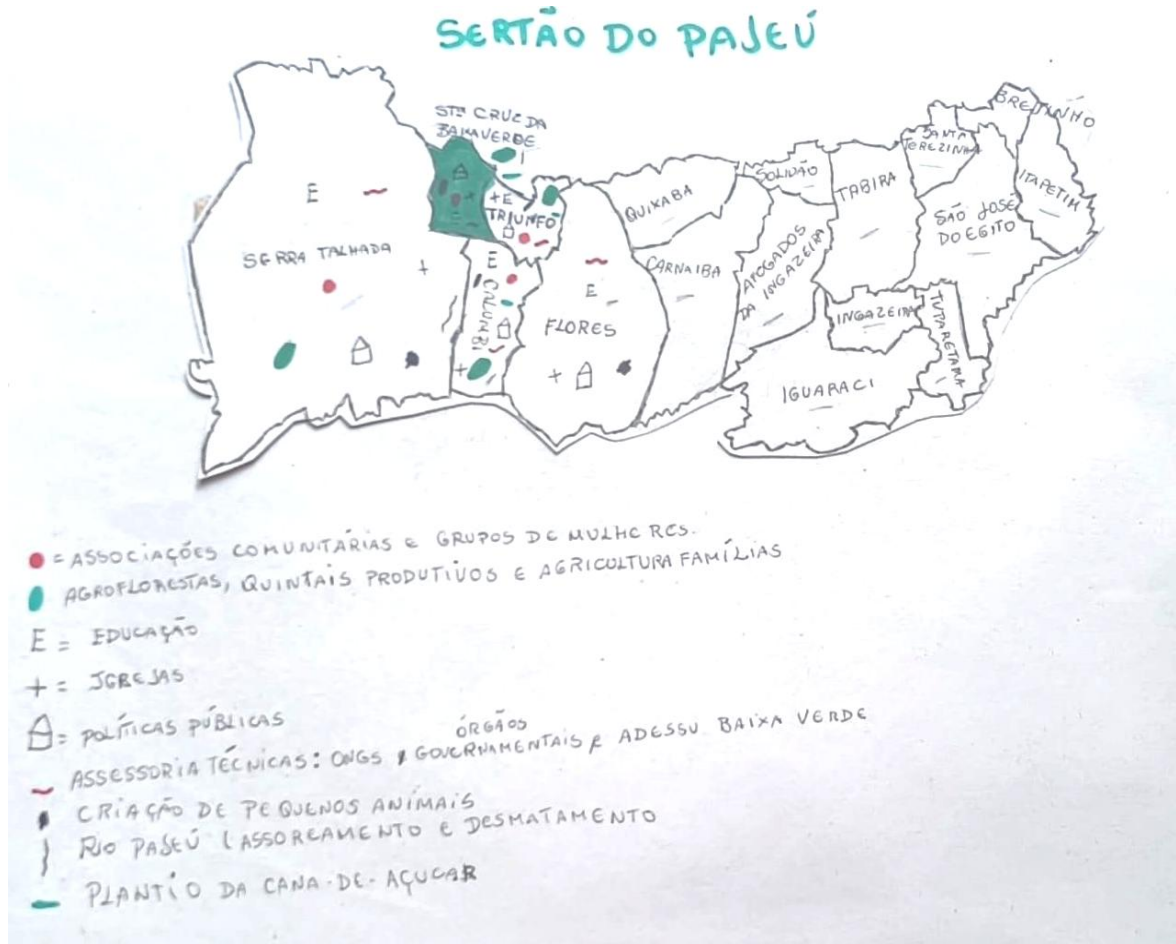 SERTÃO DO PAJEÚ
STª CRUZ DA
BAIXAVERDE
BREJINHO
SANTA
TEREZINHA
ITAPETIM
SOLIDÃO
TABIRA
SÃO JOSÉ
DO EGITO
QUIXABA
E
+E
TRIUNFO
SERRA TALHADA
+
E
CALUMBI
+
CARNAIBA
AFOGADOS
DA INGAZEIRA
E
FLORES
+
INGAZEIRA
TUPARETAMA
IGUARACI
= ASSOCIAÇÕES COMUNITÁRIAS E GRUPOS DE MULHERES.
AGROFLORESTAS, QUINTAIS PRODUTIVOS E AGRICULTURA FAMÍLIAS
E = EDUCAÇÃO
+ = IGREJAS
= POLÍTICAS PÚBLICAS
ÓRGÃOS
ASSESSORIA TÉCNICAS: ONGS, GOVERNAMENTAIS E ADESSU BAIXA VERDE
CRIAÇÃO DE PEQUENOS ANIMAIS
RIO PAJEÚ (ASSOREAMENTO E DESMATAMENTO
PLANTIO DA CANA-DE-AÇUCAR